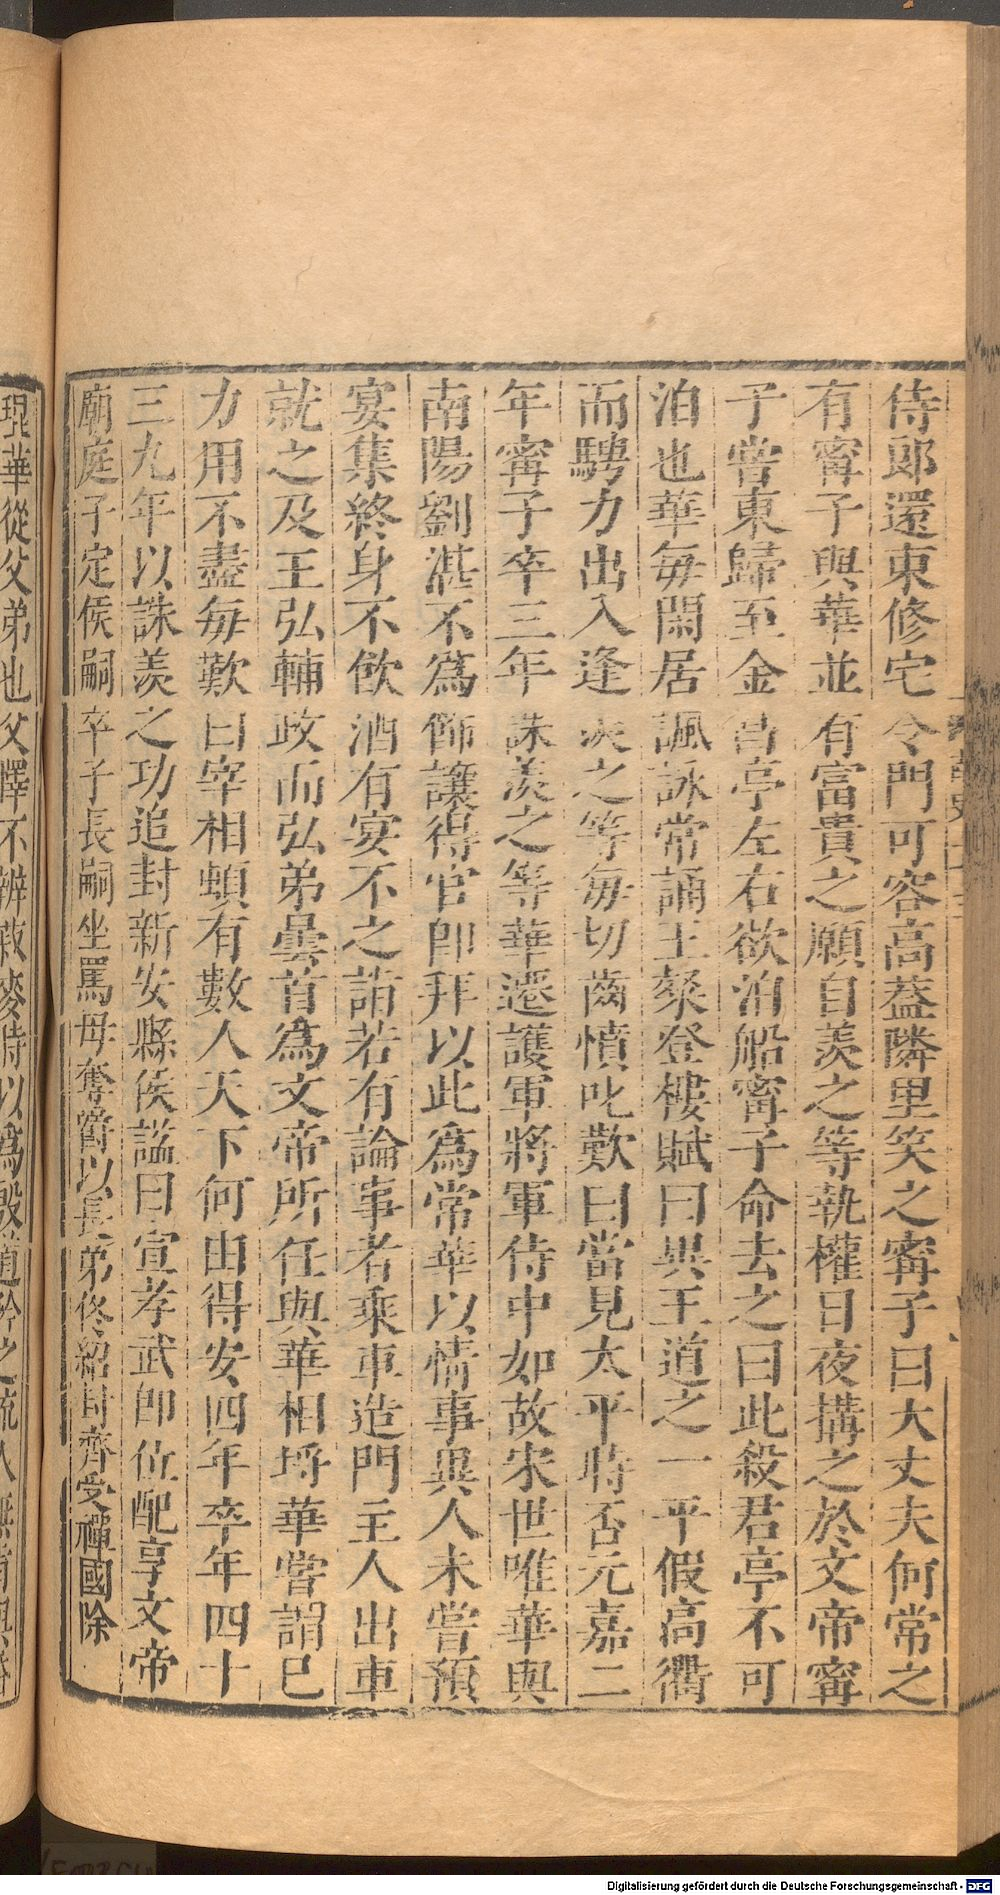 侍郎還東修宅令門可容高葢隣里笑之甯子曰大丈夫何常之
有甯子與華並有富貴之願自羨之等執權日夜搆之於文帝甯
子嘗東歸至金昌亭左右欲泊船甯子命去之曰此殺君亭不可
泊也華毎閑居諷詠常誦王粲登樓賦曰異王道之一平假高衢
而騁力出入逢羨之等毎切齒憤叱歎曰當見太平時否元嘉二
年甯子卒三年誅羨之等華遷護軍將軍侍中如故宋世唯華與
南陽劉湛不爲飾讓得官即拜以此爲常華以情事異人未嘗預
宴集終身不飲酒有宴不之詣若有論事者乘車造門主人出車
就之及王弘輔政而弘弟曇首爲文帝所任與華相埒華嘗謂已
力用不盡毎歎曰宰相頓有數人天下何由得安四年卒年四十
三九年以誅羨之功追封新安縣侯謚曰宣孝武即位配享文帝
廟庭子定侯嗣卒子長嗣坐罵母奪爵以長弟佟紹封齊受禪國除
琨華從父弟也父懌不辨菽麥時以爲殷道矜之流人無肯與婚
Digitalisierung gefördert durch die Deutsche Forschungsgemeinschaft - DFG